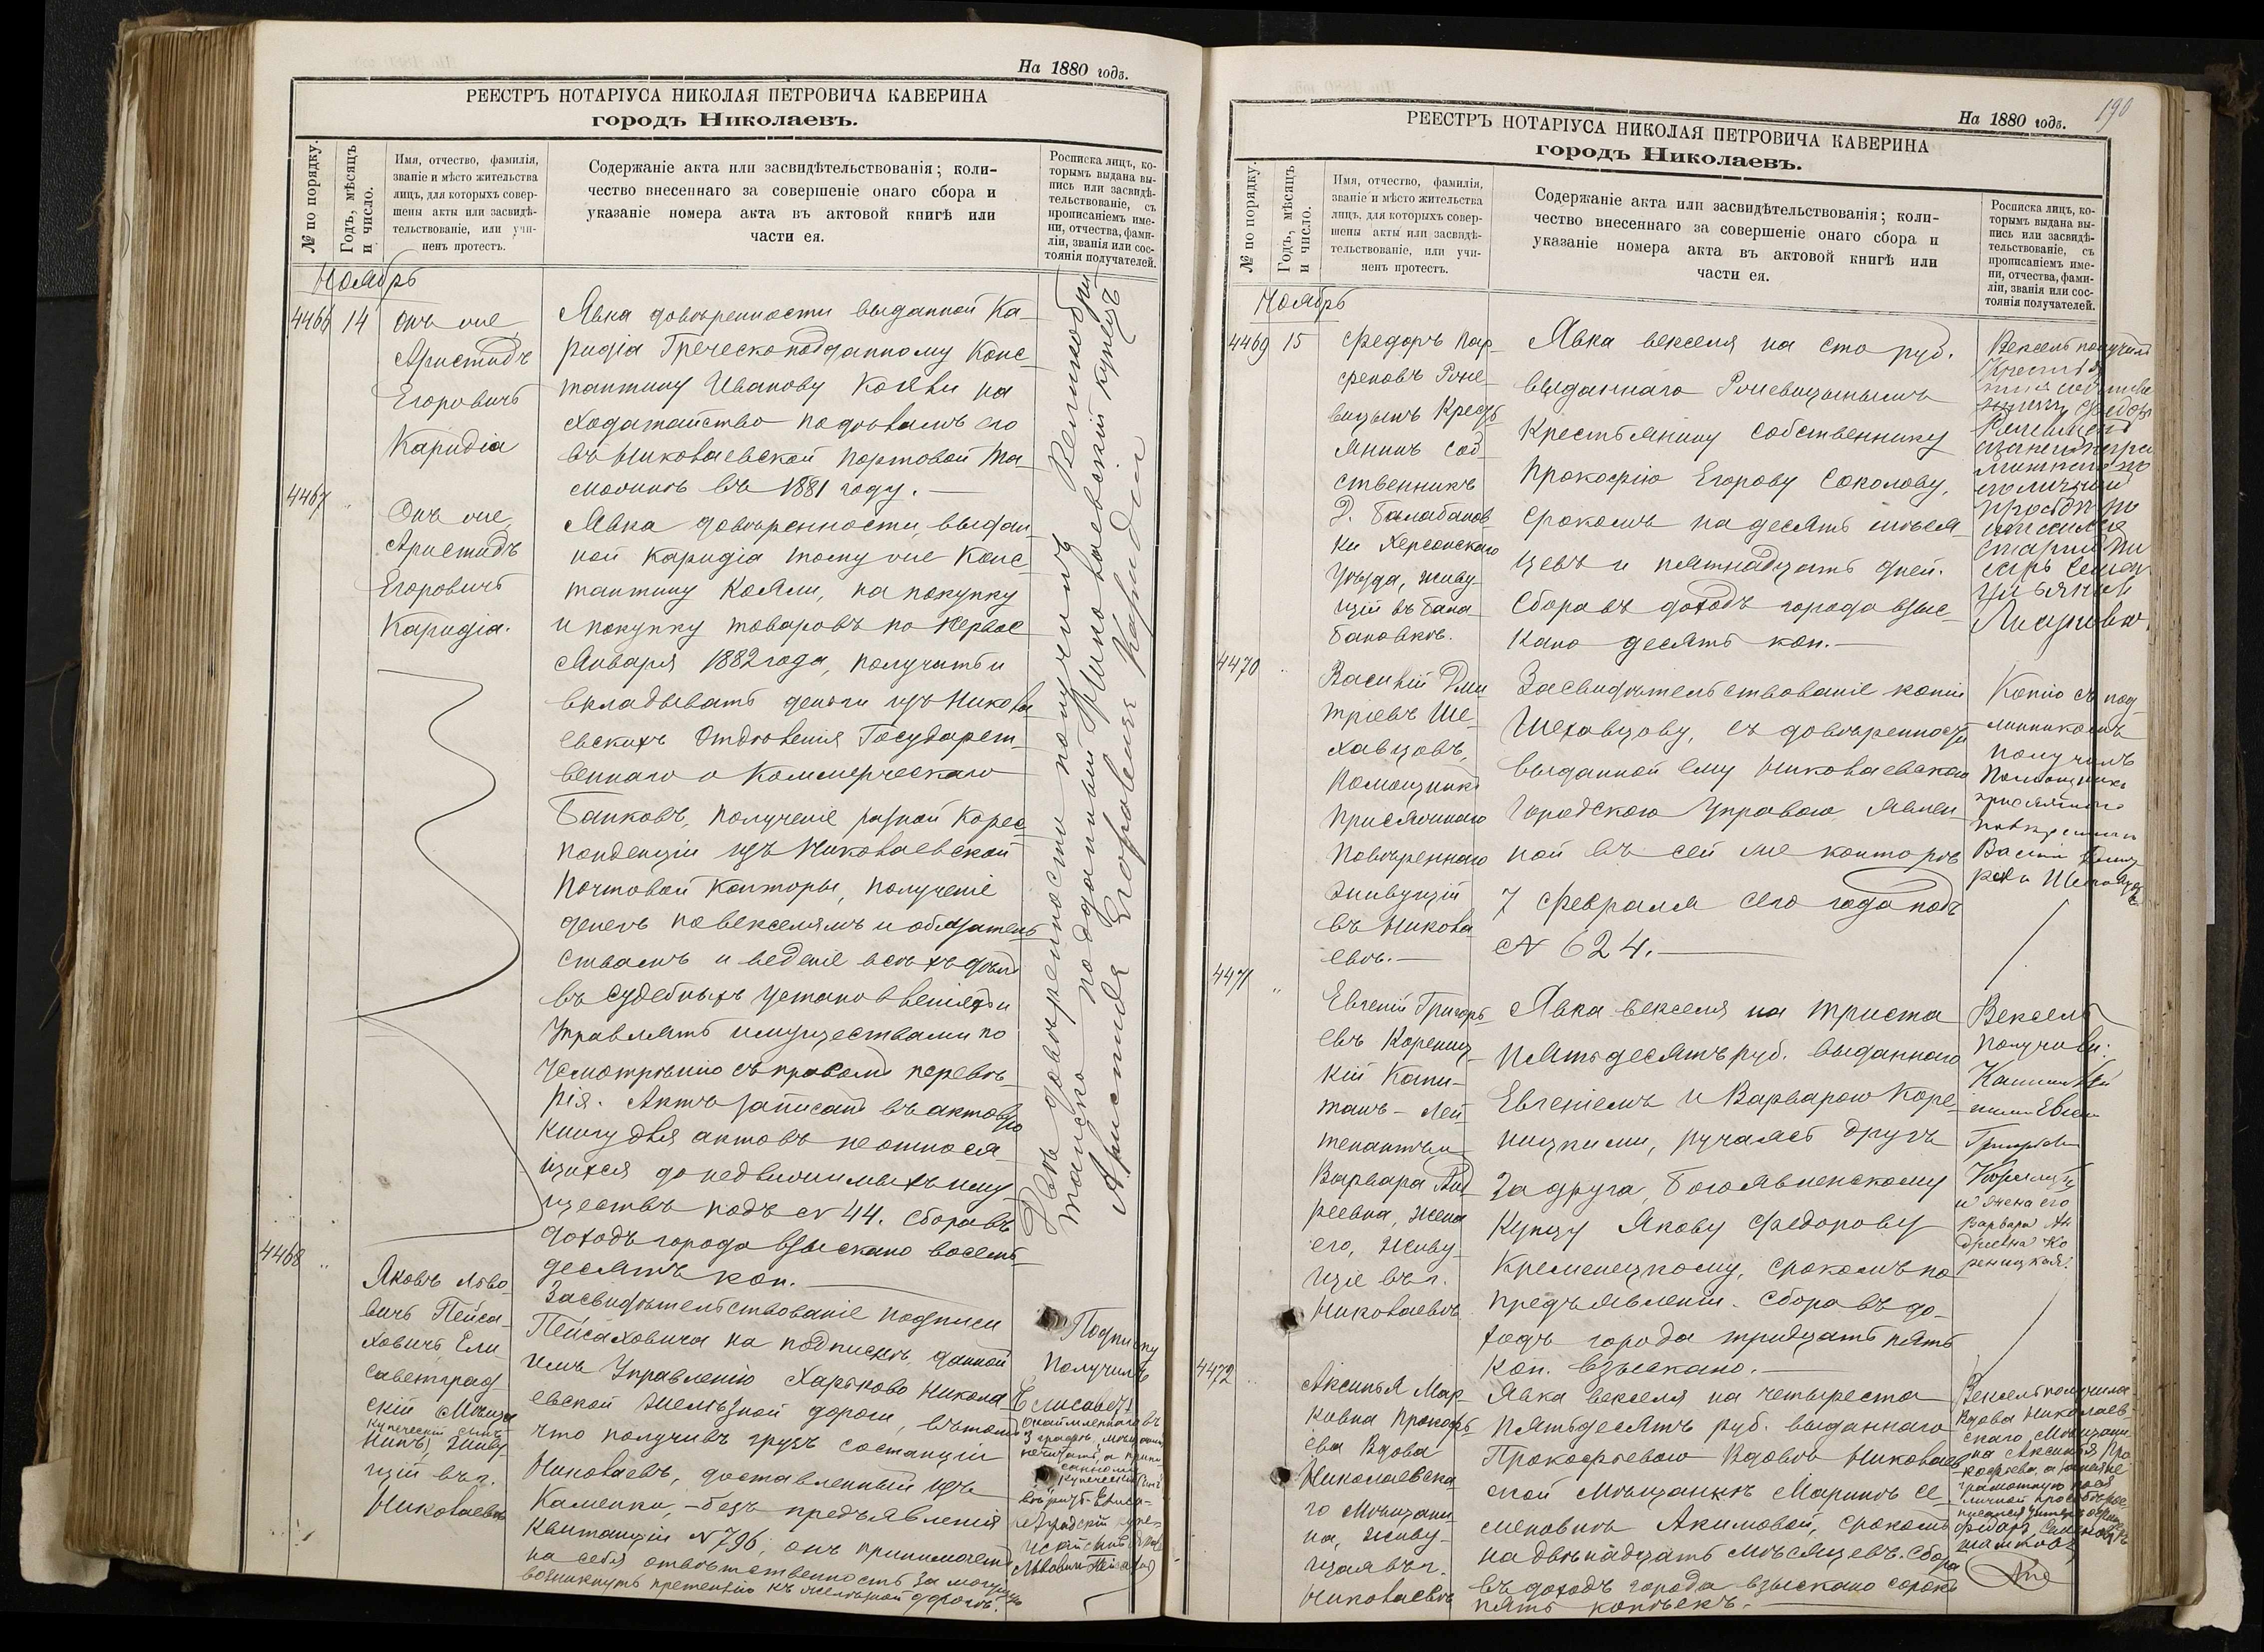 На 1880 годъ.
РЕЕСТРЪ НОТАРІУСА НИКОЛАЯ ПЕТРОВИЧА КАВЕРИНА
городъ Николаевъ.
№ по порядку.
Годъ, мѣсяцъ
и число.
Имя, отчество, фамилія,
званіе и мѣсто жительства
лицъ, для которыхъ совер-
шены акты или засвидѣ-
тельствованіе, или учи-
ненъ протестъ.
Содержаніе акта или засвидѣтельствованія; коли-
чество внесеннаго за совершеніе онаго сбора и
указаніе номера акта въ актовой книгѣ или
части ея.
Росписка лицъ, ко-
торымъ выдана вы-
пись или засвидѣ-
тельствованіе, съ
прописаніемъ име-
ни, отчества, фами-
ліи, званія или сос-
тоянія получателей.
Ноябрь
4466
14
Онъ же
Аристидъ
Егоровичъ
Каридіа
Явка довѣренности выданной Ка-
ридіа Греческоподданному Конс-
тантину Иванову Кояви на
ходатайство по дѣламъ его
въ Николаевской портовой та-
можнѣ въ 1881 году.
4467
"
Онъ же
Аристидъ
Егоровичъ
Каридіа.
Явка довѣренности, выдан-
ной Каридіа тому же Конс-
тантину Кояви, на покупку
и покупку товаровъ по первое
Января 1882 года, получать и
вкладывать деньги изъ Никола-
евскихъ Отдѣленія Государст-
веннаго и Коммерческаго
Банковъ, полученіе разной Корес-
понденціи изъ Николаевской
Почтовой Конторы, полученіе
денегъ по векселямъ и обязатель-
ствамъ и веденіе всѣхъ дѣлъ
въ судебныхъ установленіяхъ и
управлять имуществами по
усмотрѣнію съ правомъ перевѣ-
рія. Актъ записанъ въ актовую
книгу для актовъ не относя-
щихся до недвижимыхъ иму-
ществъ подъ № 44. Сбора въ
доходъ города взыскано восемь-
десятъ коп.
Двѣ довѣренности получилъ Великобри-
танско подданный Николаевскій купецъ
Аристидъ Егоровичъ Каридіа
4468
"
Яковъ Льво-
вичъ Пейса-
ховичъ Ели-
саветград-
скій Мѣща-
купеческій сынъ
нинъ, живу-
щій въ г.
Николаевѣ
Засвидѣтельствованіе подписи
Пейсаховича на подпискѣ, данной
имъ Управленію Харьково Никола-
евской желѣзной дороги, въ томъ
что получивъ грузъ со станціи
Николаевъ, доставленный изъ
Каменки, – безъ предъявленія
Квитанціи № 796, онъ принимаетъ
на себя отвѣтственность за могущую
возникнуть претензію къ желѣзной дорогѣ.
Подписку
получилъ
Елисавет
На 1880 годъ.
190
РЕЕСТРЪ НОТАРІУСА НИКОЛАЯ ПЕТРОВИЧА КАВЕРИНА
городъ Николаевъ.
№ по порядку.
Годъ, мѣсяцъ
и число.
Имя, отчество, фамилія,
званіе и мѣсто жительства
лицъ, для которыхъ совер-
шены акты или засвидѣ-
тельствованіе, или учи-
ненъ протестъ.
Содержаніе акта или засвидѣтельствованія; коли-
чество внесеннаго за совершеніе онаго сбора и
указаніе номера акта въ актовой книгѣ или
части ея.
Росписка лицъ, ко-
торымъ выдана вы-
пись или засвидѣ-
тельствованіе, съ
прописаніемъ име-
ни, отчества, фами-
ліи, званія или сос-
тоянія получателей.
Ноябрь
4469
15
Федоръ Пар-
феновъ
Кресть-
янинъ соб-
ственникъ
Д. Балабанов-
ки Херсонскаго
уѣзда, живу-
щій въ Бала-
бановкѣ.
Явка векселя на сто руб.
выданнаго
Крестьянину собственнику
Прокофію Егорову Соколову,
срокомъ на десять мѣся-
цевъ и пятнадцать дней.
Сбора въ доходъ города взыс-
кано десять коп.
Вексель получилъ
4470
"
Василій Дми-
тріевъ Ше-
ховцовъ,
Помощникъ
Присяжнаго
Повѣреннаго
живущій
въ Никола-
евѣ.
Засвидѣтельствованіе копіи
Шеховцову, съ довѣренности
выданной ему Николаевскою
Городскою Управою явлен-
ной въ сей же конторѣ
7 февраля сего года подъ
№ 624.
Копію съ под-
линникомъ
получилъ
Помощникъ
присяжнаго
повѣреннаго
4471
"
Евгеній Григорь-
евъ Корениц-
кій Капи-
танъ-Лей-
тенантъ и
Варвара Анд-
реевна, жена
его, живу-
щіе въ г.
Николаевѣ
Явка векселя на триста
пятьдесятъ руб. выданнаго
Евгеніемъ и Варварою Коре-
ницкими, ручаясь другъ
за друга, Богоявленскому
Купцу Якову Федорову
Кременецкому, срокомъ по
предъявленіи. Сбора въ до-
ходъ города тридцать пять
коп. взыскано.
Вексель
получили:
и жена его
Варвара Ан-
дреевна Ко-
реницкая.
4472
"
Аксинья Мар-
ковна Прокофь-
ева Вдова
Николаевска-
го Мѣщани-
на, живу-
щая въ г.
Николаевѣ
Явка векселя на четыреста
пятьдесятъ руб. выданнаго
Прокофьевою Вдовѣ Николаев-
ской Мѣщанкѣ Маринѣ Се-
меновнѣ Акимовой, срокомъ
на двѣнадцать мѣсяцевъ. Сбора
въ доходъ города взыскано сорокъ
пять копѣекъ.
Вексель получила
Вдова Николаев-
скаго Мѣщани-
на Аксинья Про-
кофьева,